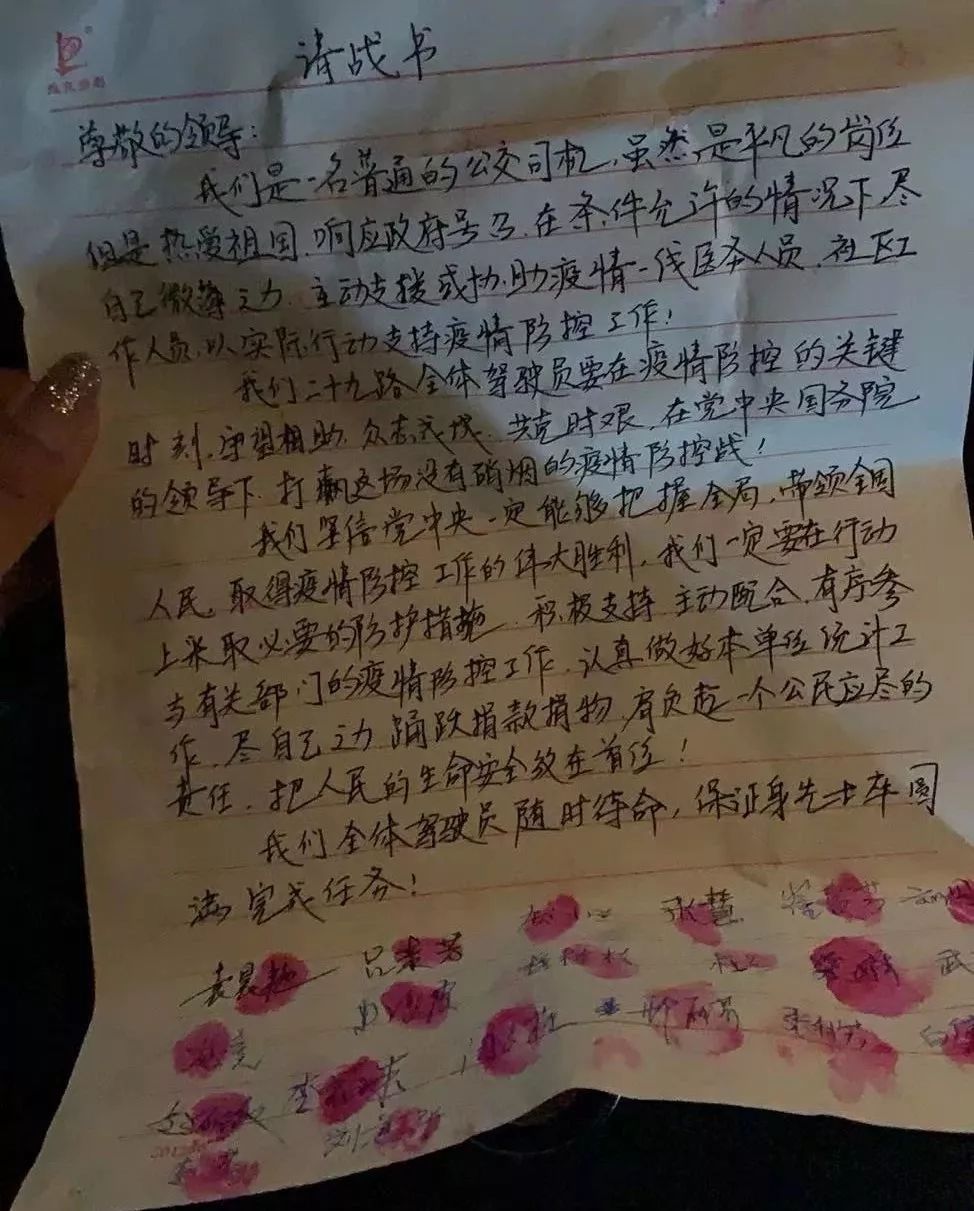 请战书
尊敬的领导：
我们是一名普通的公交司机，虽然是平凡的岗位
但是热爱祖国，响应政府号召，在条件允许的情况下尽
自己微薄之力，主动支援或协助疫情一线医务人员，社区工
作人员，以实际行动支持疫情防控工作！
我们二十九路全体驾驶员要在疫情防控的关键
时刻，守望相助，众志成城，共克时艰，在党中央国务院
的领导下，打赢这场没有硝烟的疫情防控战！
我们坚信党中央一定能够把握全局，带领全国
人民，取得疫情防控工作的伟大胜利，我们一定要在行动
上采取必要的防护措施，积极支持，主动配合，有序参
与有关部门的疫情防控工作，认真做好本单位统计工
作，尽自己之力，踊跃捐款捐物，肩负起一个公民应尽的
责任，把人民的生命安全放在首位！
我们全体驾驶员随时待命，保证身先士卒圆
满完成任务！
张慧